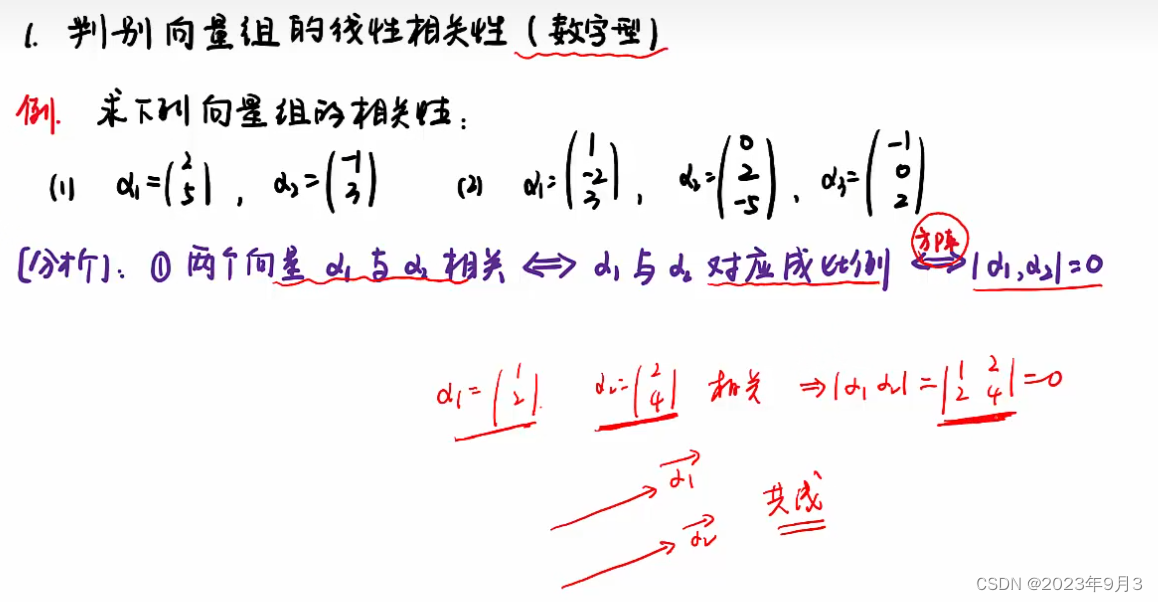 1. 判别向量组的线性相关性(数字型)
例. 求下列向量组的相关性:
(1) α₁=(2 5), α₂=(-1 3) (2) α₁=(1 -2 3), α₂=(0 2 -5), α₃=(-1 0 2)
[分析]: ① 两个向量 α₁ 与 α₂ 相关 ⟺ α₁ 与 α₂ 对应成比例 方阵 ⟺ |α₁,α₂|=0
α₁=(1 2). α₂=(2 4) 相关 ⇒|α₁ α₂|=|1 2 2 4|=0
α₁
共线
α₂
CSDN @2023年9月3